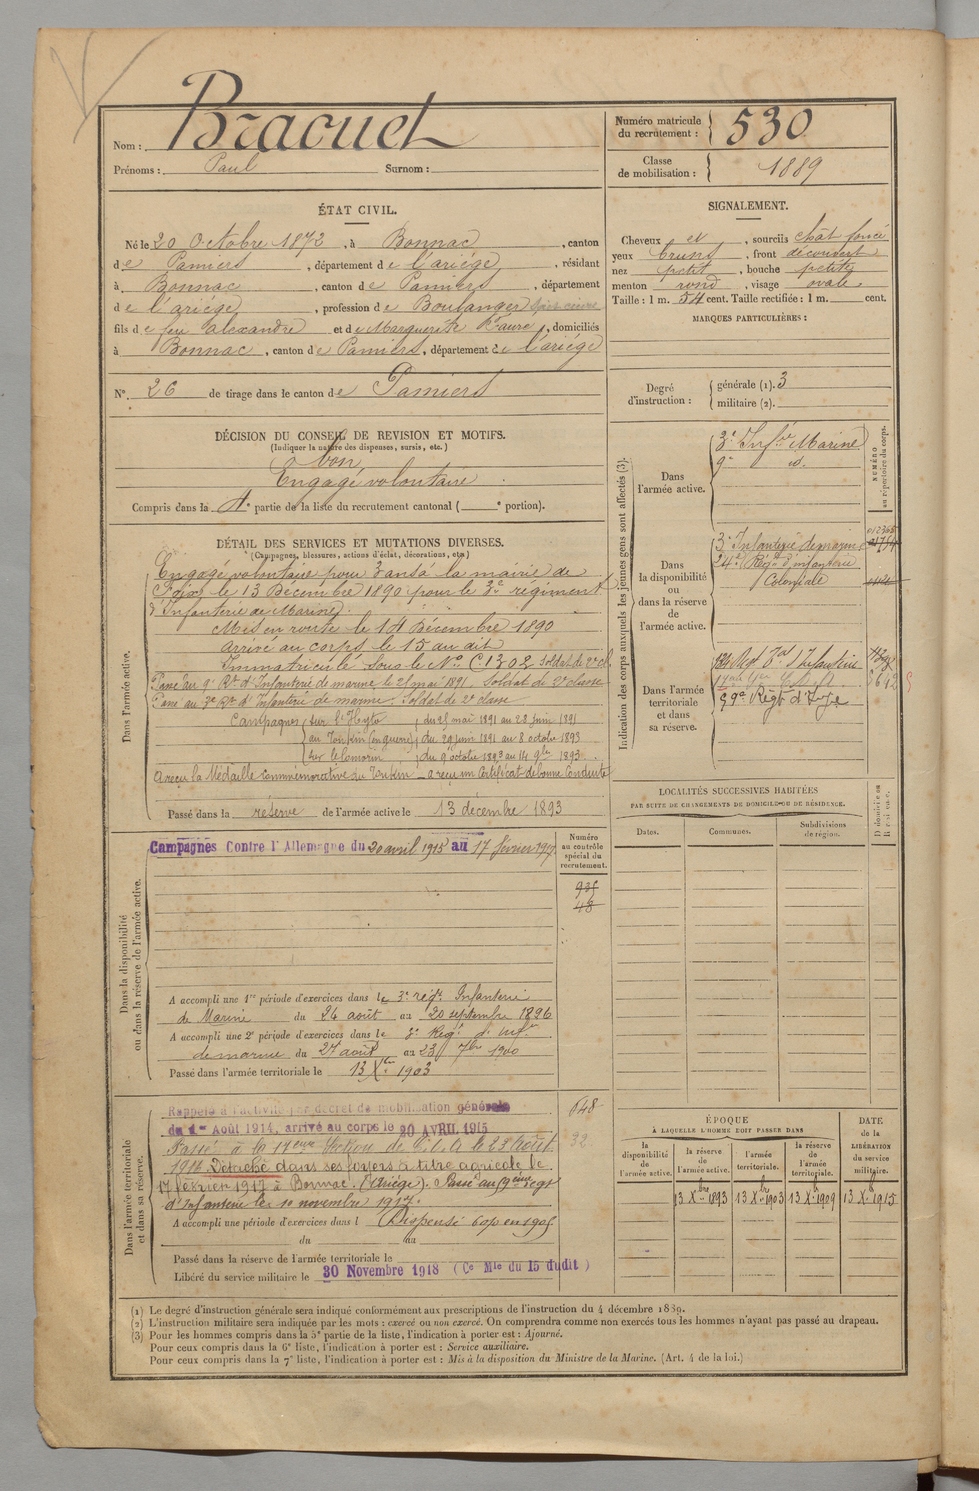 Nom : Braouet
Prénoms : Paul Surnom :
Numéro matricule du recrutement : 530
Classe de mobilisation : 1889
ÉTAT CIVIL.
Né le 20 Octobre 1872, à Bonnac, canton
de Pamiers, département de l'ariége, résidant
à Bonnac, canton de Pamiers, département
de l'ariége, profession de Boulanger
fils de feu alexandre et de Marguerite Faure, domiciliés
à Bonnac, canton de Pamiers, département de l'ariége
N° 26 de tirage dans le canton de Pamiers
SIGNALEMENT.
Cheveux et, sourcils chât foncé
yeux bruns, front découvert
nez petit, bouche petite
menton rond, visage ovale.
Taille : 1 m. 54 cent. Taille rectifiée : 1 m. cent.
MARQUES PARTICULIÈRES :
Degré d'instruction : générale (1). 3
militaire (2).
DÉCISION DU CONSEIL DE REVISION ET MOTIFS.
(Indiquer la nature des dispenses, sursis, etc.)
bon
Engagé volontaire
Compris dans la 4e partie de la liste du recrutement cantonal ( e portion).
DÉTAIL DES SERVICES ET MUTATIONS DIVERSES.
(Campagnes, blessures, actions d'éclat, décorations, etc.)
Dans l'armée active.
Engagé volontaire pour 3 ans à la mairie de
Foix le 13 Décembre 1890 pour le 3e régiment
d'Infanterie de Marine
Mis en route le 14 Décembre 1890
arrivé au corps le 15 au dit
Immatriculé sous le N° C1302 Soldat de 2e cl
Passé au 9e Rt d'Infanterie de marine le 21 mai 1891. Soldat de 2e classe
Passé au 3e Rt d'Infanterie de marine. Soldat de 2e classe
Campagnes sur l'Hyto du 21 mai 1891 au 28 juin 1891
au Tonkin (en guerre) du 29 juin 1891 au 8 octobre 1893
sur le Comorin du 9 octobre 1893 au 14 9bre 1893
a reçu la Médaille commémorative du Tonkin _ a reçu un Certificat de bonne Conduite
Passé dans la réserve de l'armée active le 13 décembre 1893
Indication des corps auxquels les jeunes gens sont affectés (3).
NUMÉRO au répertoire du corps.
Dans l'armée active.
3e Infrie Marine
9e id.
Dans la disponibilité ou dans la réserve de l'armée active.
3e Infanterie de marine
24e Régt d'infanterie
Coloniale
Dans l'armée territoriale et dans sa réserve.
134 Regt Tal d'Infanterie
59e Régt d'Infie
LOCALITÉS SUCCESSIVES HABITÉES
PAR SUITE DE CHANGEMENTS DE DOMICILE OU DE RÉSIDENCE.
Dates. Communes. Subdivisions de région.
Dans la disponibilité ou dans la réserve de l'armée active.
Campagnes Contre l'Allemagne du 20 avril 1915 au 17 février 1917
Numéro au contrôle spécial du recrutement.
935
48
A accompli une 1re période d'exercices dans le 3e régt Infanterie
de Marine du 24 août au 20 septembre 1896
A accompli une 2e période d'exercices dans le 3e Régt d'Infie
de marine du 27 août au 23 7bre 1900
Passé dans l'armée territoriale le 13 Xbre 1903
Dans l'armée territoriale et dans sa réserve.
Rappelé à l'activité par décret de mobilisation générale
du 1er Août 1914, arrivé au corps le 20 AVRIL 1915
648
32
Passé à la 17eme Section de C.O.A le 23 Août
1916 Détaché dans ses foyers à titre agricole le
17 février 1917 à Bonnac. (Ariège). Passé au 59eme régt
d'Infanterie le 10 novembre 1917.
A accompli une période d'exercices dans l Dispensé
du au
Passé dans la réserve de l'armée territoriale le
Libéré du service militaire le 30 Novembre 1918 (Ce Mle du 15 dudit)
ÉPOQUE
À LAQUELLE L'HOMME DOIT PASSER DANS
la disponibilité de l'armée active.
la réserve de l'armée active.
l'armée territoriale.
la réserve de l'armée territoriale.
DATE de la LIBÉRATION du service militaire.
13 Xbre 1893 13 Xbre 1903 13 Xb 1909 13 Xb 1915
(1) Le degré d'instruction générale sera indiqué conformément aux prescriptions de l'instruction du 4 décembre 1889.
(2) L'instruction militaire sera indiquée par les mots : exercé ou non exercé. On comprendra comme non exercés tous les hommes n'ayant pas passé au drapeau.
(3) Pour les hommes compris dans la 5e partie de la liste, l'indication à porter est : Ajourné.
Pour ceux compris dans la 6e liste, l'indication à porter est : Service auxiliaire.
Pour ceux compris dans la 7e liste, l'indication à porter est : Mis à la disposition du Ministre de la Marine. (Art. 4 de la loi.)